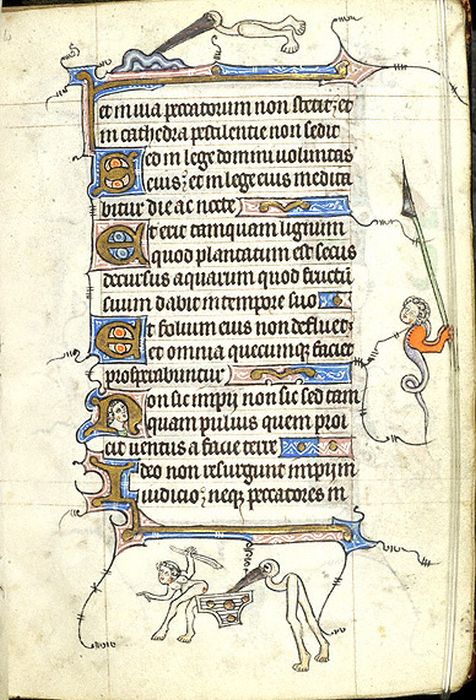 et in uia peccatorum non stetit; et
in cathedra pestilentie non sedit
Sed in lege domini uoluntas
eius; et in lege eius medita
bitur die ac nocte
Et erit tamquam lignum
quod plantatum est secus
decursus aquarum quod fructū
suum dabit in tempore suo
Et folium eius non defluet;
et omnia quecumq; faciet
prosperabuntur
Non sic impij non sic sed tam
quam puluis quem proi
cit uentus a facie terre
Ideo non resurgunt impij in
iudicio; neq; peccatores in